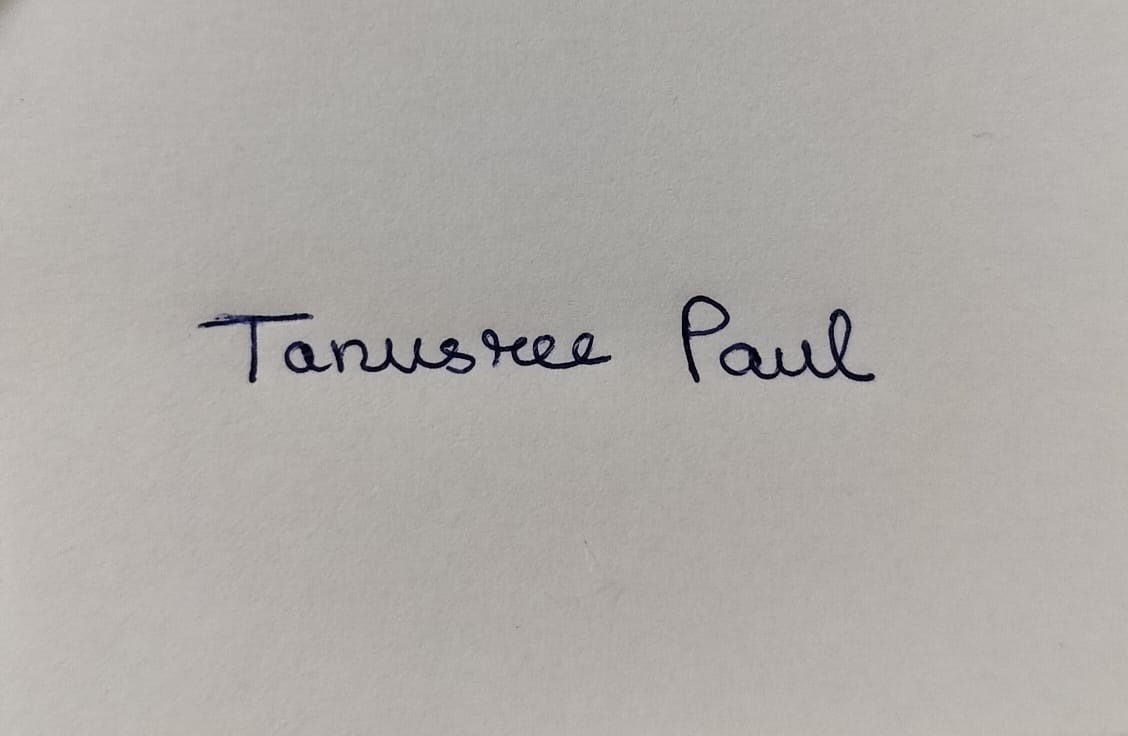 Tanusree Paul